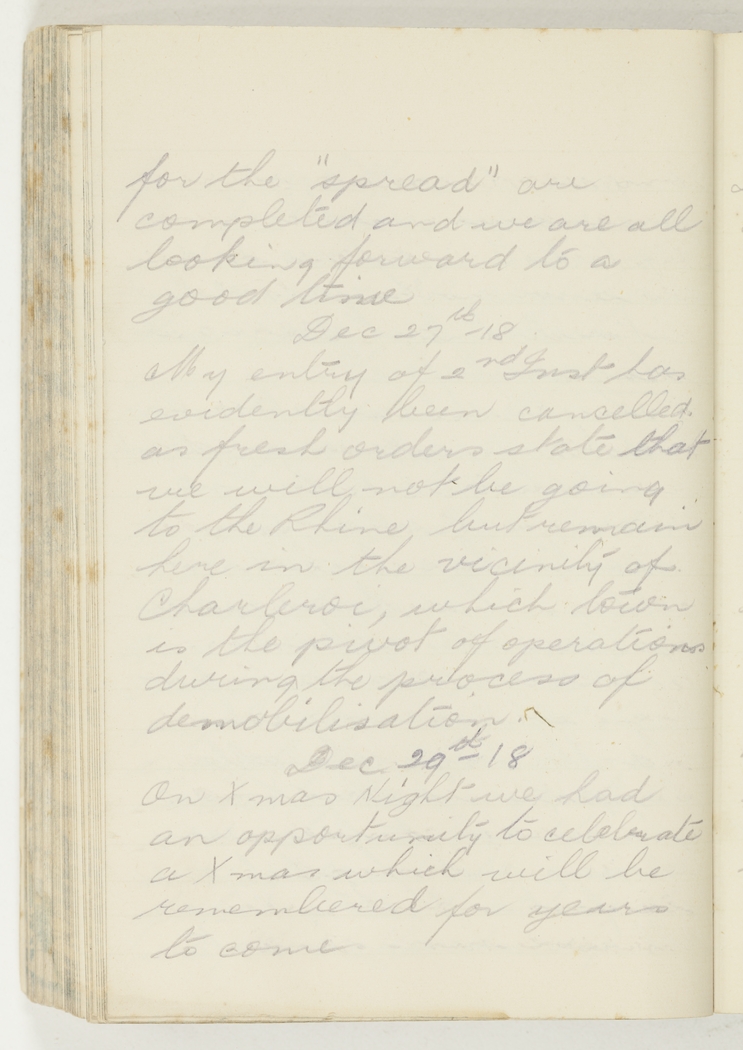 for the "spread" are
completed and we are all
looking forward to a
good time
Dec 27th-18
My entry of 2nd Inst has
evidently been cancelled.
as fresh orders state that
we will not be going
to the Rhine, but remain
here in the vicinity of
Charleroi, which town
is the pivot of operations
during the process of
demobilisation.
Dec. 29th-18
On Xmas Night we had
an opportunity to celebrate
a Xmas which will be
remembered for years
to come